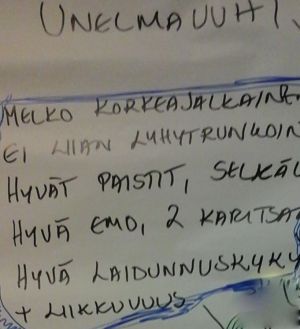 UNELMAUUHI
MELKO KORKEAJALKAINEN
EI LIIAN LYHYTRUNKOIN
HYVÄT PAISTIT, SELKÄL
HYVÄ EMO, 2 KARITSA
HYVÄ LAIDUNNUSKYKY
+ LIIKKUVUUS